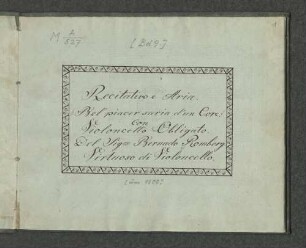 M A/527
[2d9]
Recitativo è Aria.
Bel piacer saria d'un Core
con
Violoncello Obligato
Del Sigr Bernardo Romberg
Virtuoso di Violoncello.